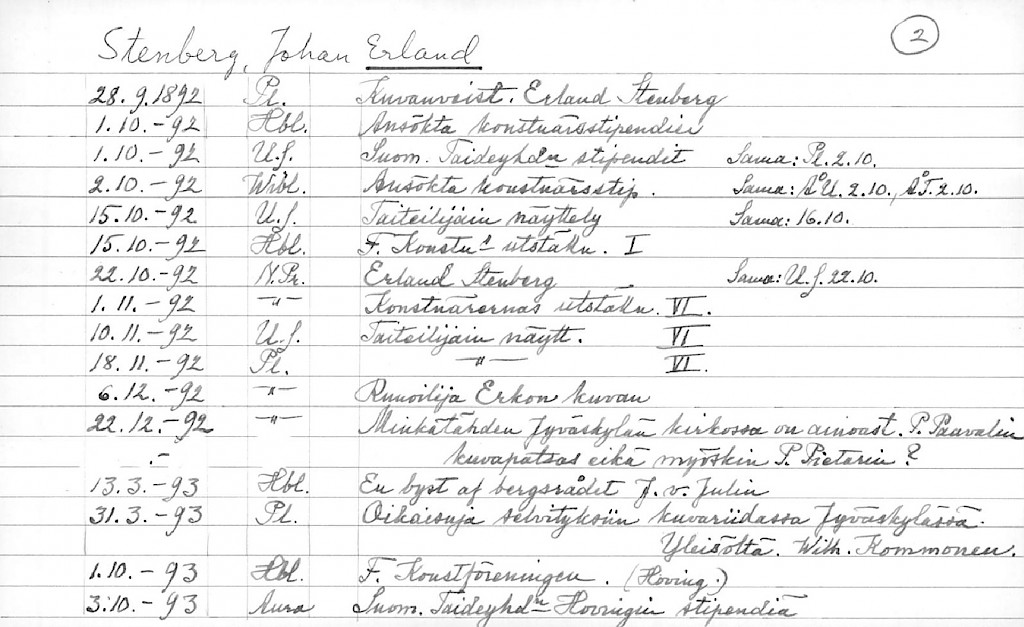 Stenberg, Johan Erland 2
28.9.1892 Pl. Kuvanveist. Erland Stenberg
1.10.-92 Hbl. Ansökta konstnärsstipendier
1.10.-92 U.S. Suom. Taideyhd:n stipendit Sama: Pl. 2.10.
2.10.-92 Wibl. Ansökta konstnärsstip. Sama: ÅU. 2.10., ÅT. 2.10.
15.10.-92 U.S. Taiteilijain näyttely Sama: 16.10.
15.10.-92 Hbl. F. Konstn:s utställn. I
22.10.-92 N.Pr. Erland Stenberg Sama: U.S. 22.10.
1.11.-92 -"- Konstnärernas utställn. VI.
10.11.-92 U.S. Taiteilijain näytt. VI
18.11.-92 Pl. -"- VI.
6.12.-92 -"- Runoilija Erkon kuvan
22.12.-92 -"- Minkätähden Jyväskylän kirkossa on ainoast. P. Paavalin
.- kuvapatsas eikä myöskin P. Pietarin?
13.3.-93 Hbl. En byst af bergsrådet J. v. Julin
31.3.-93 Pl. Oikaisuja selvityksiin kuvariidassa Jyväskylässä.
Yleisöltä. Wilh. Kommonen.
1.10.-93 Hbl. F. Konstföreningen. (Hoving.)
3.10.-93 Aura Suom. Taideyhd:n Hovingin stipendiä